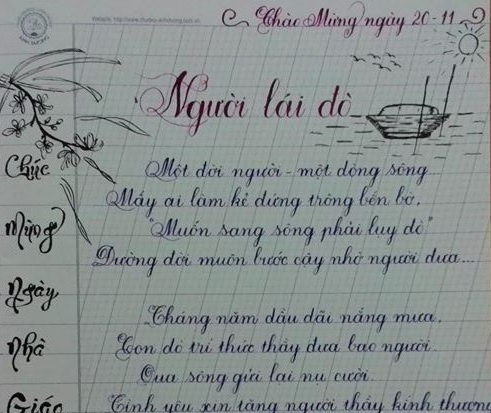 Website: http://www.
Chào Mừng ngày 20-11
Người lái đò
Một đời người - một dòng sông
Mấy ai làm kẻ đứng trông bến bờ,
"Muốn sang sông phải luỵ đò"
Đường đời muôn bước cậy nhờ người đưa...
Tháng năm dầu dãi nắng mưa,
Con đò trí thức thầy đưa bao người.
Qua sông gửi lại nụ cười
Tình yêu xin tặng người thầy kính thương
Chúc
Mừng
Ngày
Nhà
Giáo